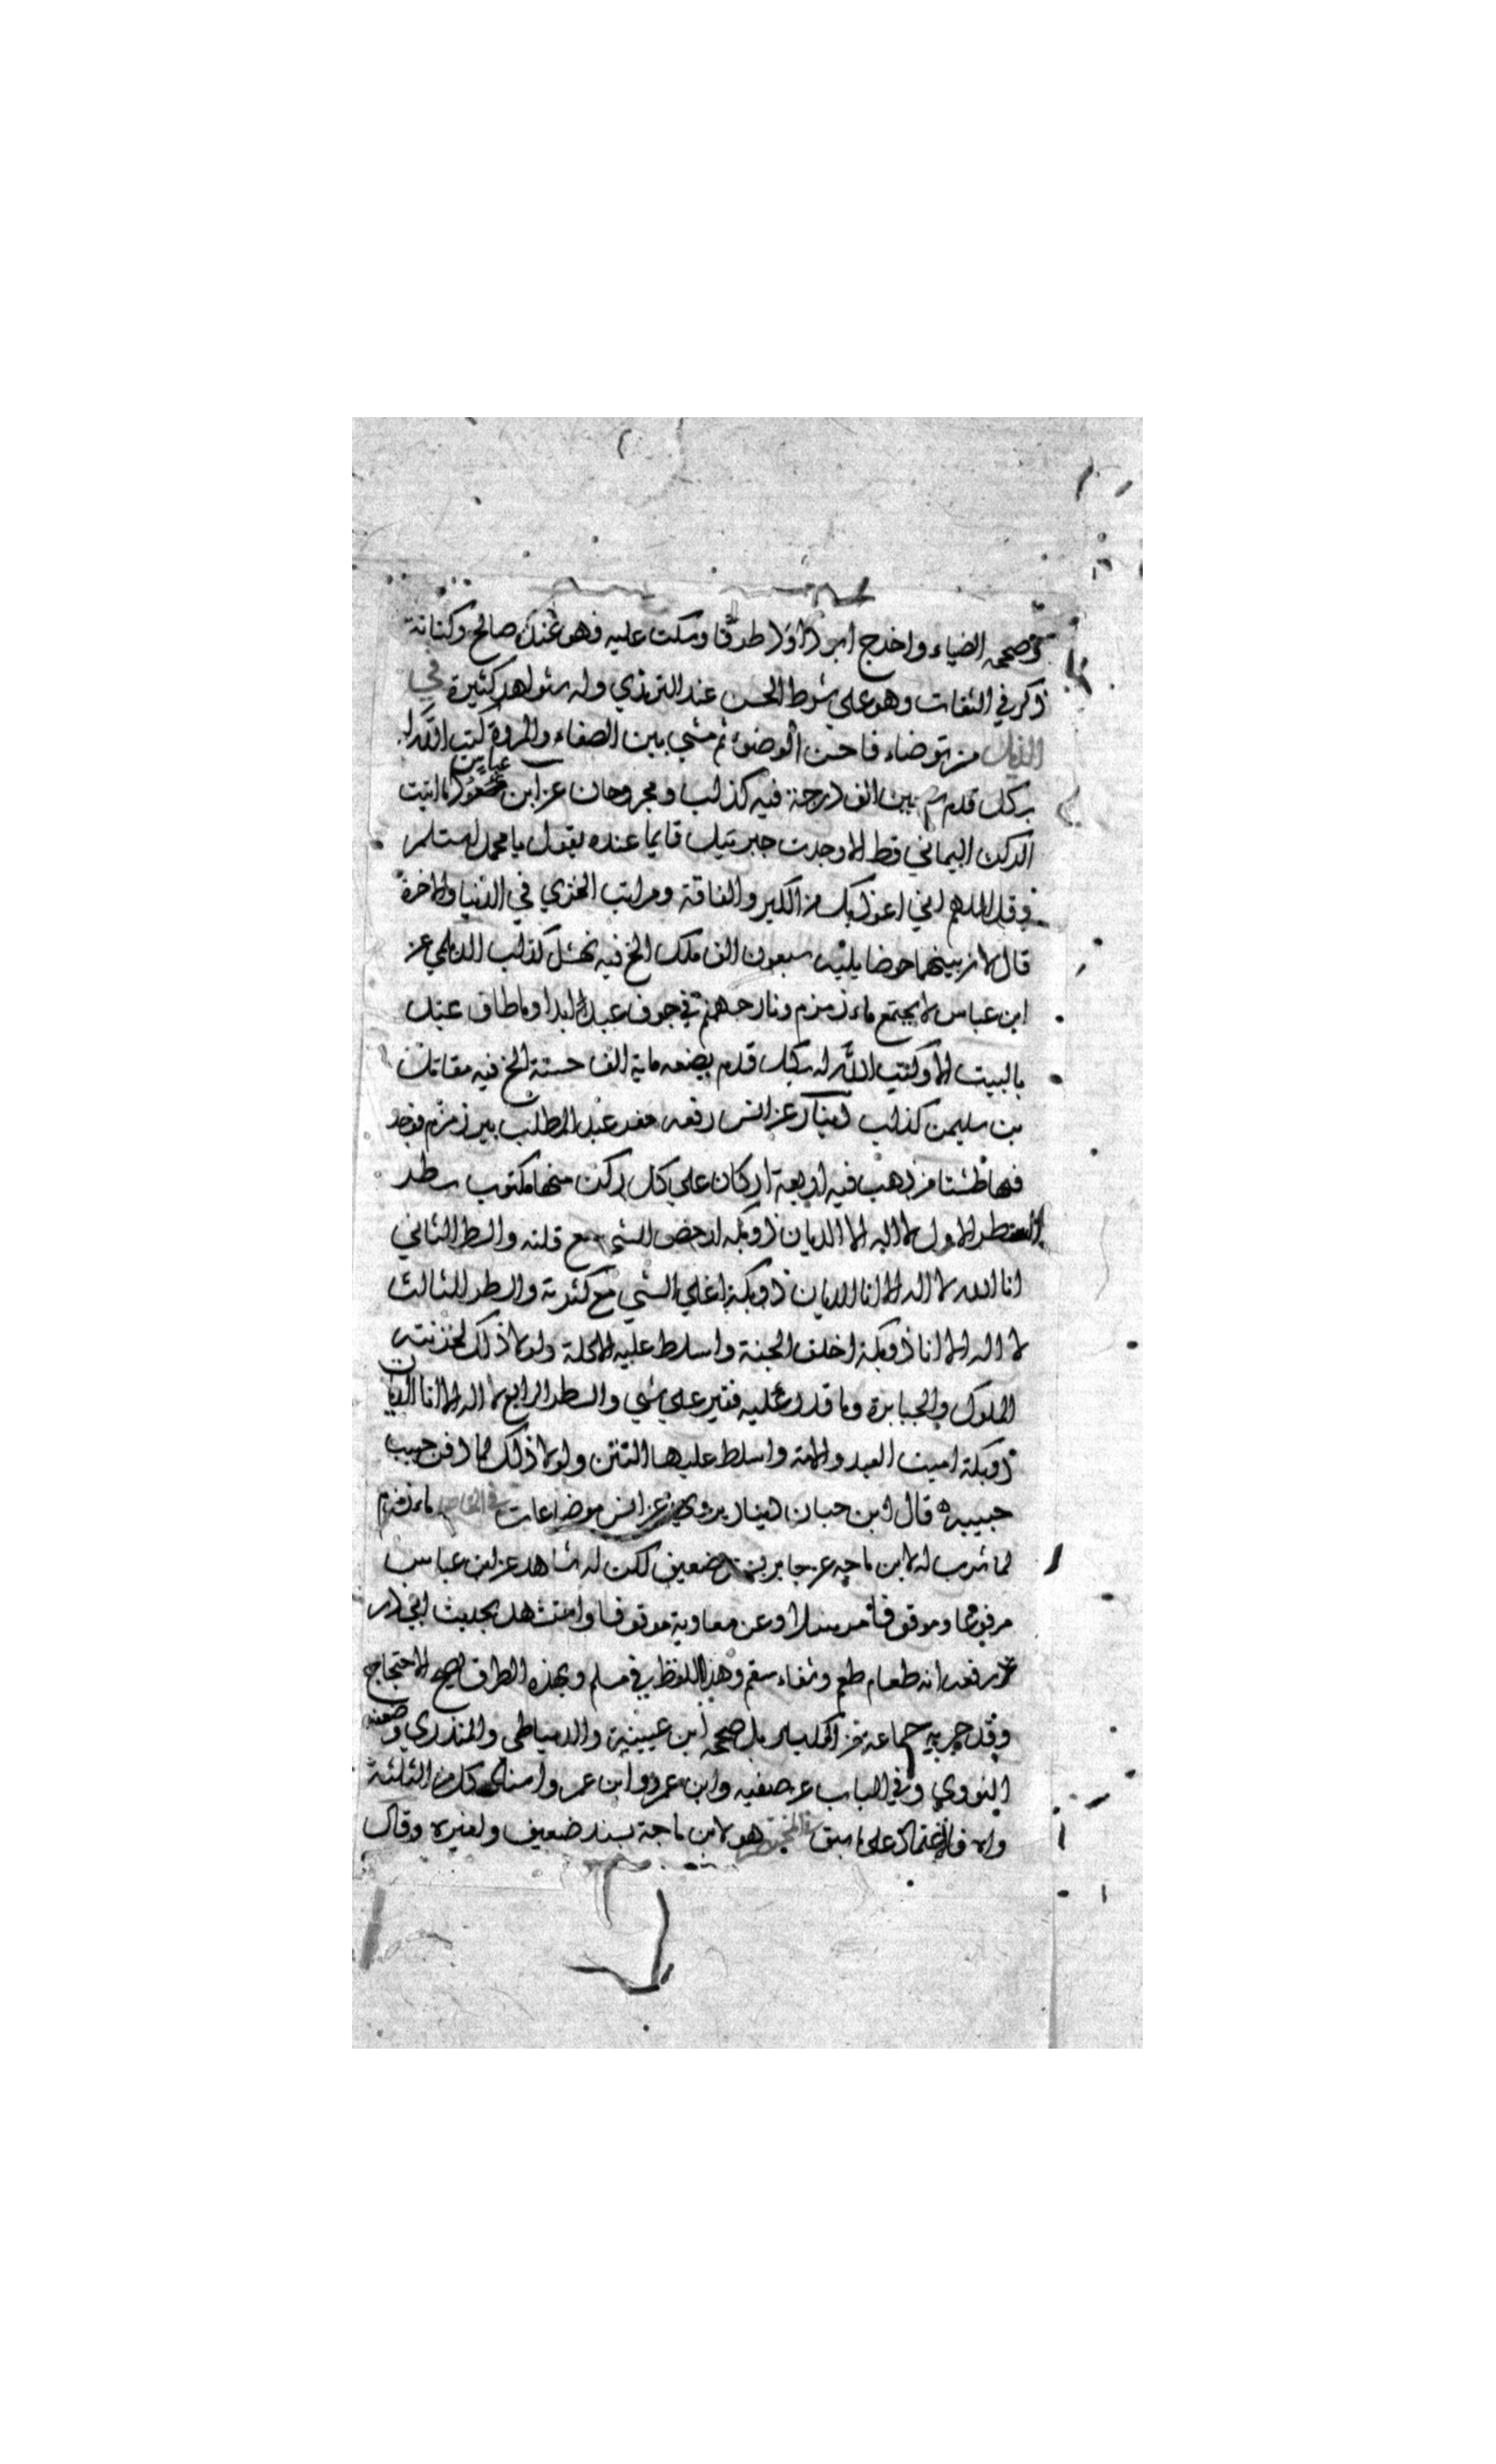 وصححه الضياء واخرج ابو داود طرقا وسكت عليه فهو عنده صالح وكنانة
ذكر في الثقات وهو على شرط الحسن عند الترمذي وله شواهد كثيرة في
الذيل من توضاء فاحسن الوضوء ثم مشي بين الصفاء والمروة كتب الله له
بكل قدم سبعين الف درجة فيه كذاب ومجروحان عن ابن عباس ما اتيت
الركن اليماني قط الا وجدت جبرئيل قايما عنده يقول يا محمد استلم
وقل اللهم اني اعوذ بك من الكبر والفاقة ومراتب الخزي في الدنيا والاخرة
قال لان بينهما حوضا يليه سبعون الف ملك الخ فيه نهشل كذاب الديلمي عن
ابن عباس لا يجتمع ماء زمزم ونار جهنم في جوف عبد ابدا وما طاف عبد
بالبيت الا وكتب الله له بكل قدم يضعه ماية الف حسنة الخ فيه مقاتل
بن سليمن كذاب دينار عن انس رفعه حفر عبد المطلب بير زمزم فوجد
فيها طشتا من ذهب فيه اربعة اركان علي كل ركن منها مكتوب سطر
السطر الاول لا اله الا الديان ذو بكة ارخص الشي مع قلته والسطر الثاني
انا الله لا اله الا انا الديان ذو بكة اغلي الشي مع كثرته والسطر الثالث
لا اله الا انا ذو بكة اخلف الجنة واسلط عليه الاكلة ولولا ذلك لخزنته
الملوك والجبابرة وما قدر عليه فقير علي شي والسطر الرابع لا اله الا انا الديان
ذو بكة اميت العبد والامة واسلط عليها النتن ولولا ذلك لما دفن حبيب
حبيبه قال ابن حبان دينار يروي عن انس موضوعات في المقاصد ماء زمزم
لما شرب له لابن ماجه عن جابر بسند ضعيف لكن له شاهد عن ابن عباس
مرفوعا وموقوفا مرسلا وعن معاوية موقوفا واستشهد بحديث ابي ذر
رفعه انه طعام طعم وشفاء سقم وهذا اللفظ في مسلم وبهذه الطرق يصح الاحتجاج
وقد جربه جماعة من الكبار بل صححه ابن عيينة والدمياطي والمنذري وضعفه
النووي وفي الباب عن صفيه وابن عمرو وابن عمر واسناد كل من الثلثة
واه فالاعتماد على ما سبق في المختصر هو لابن ماجة بسند ضعيف ولغيره وقال